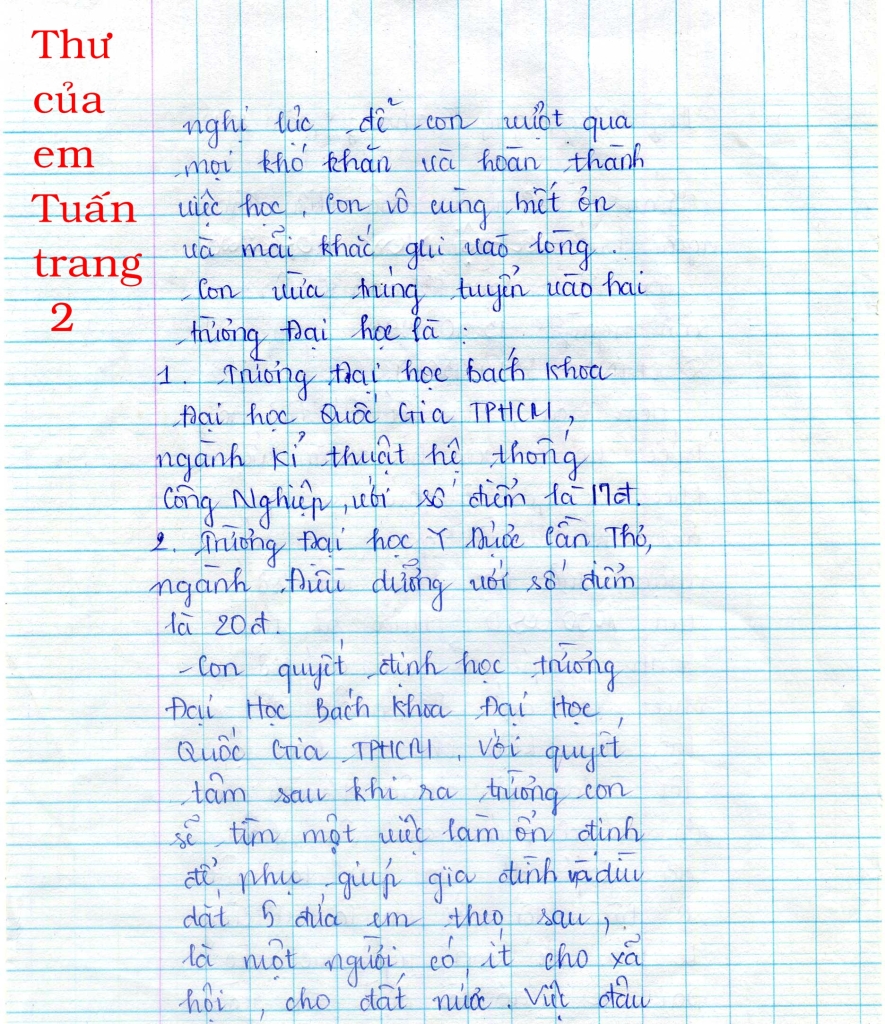 Thư
của
em
Tuấn
trang
2
nghị lực để con vượt qua
mọi khó khăn và hoàn thành
việc học. Con vô cùng biết ơn
và mãi khắc ghi vào lòng.
Con vừa trúng tuyển vào hai
trường Đại học là :
1. Trường Đại học Bách Khoa
Đại học Quốc Gia TPHCM,
ngành kĩ thuật hệ thống
Công Nghiệp, với số điểm là 17đ.
2. Trường Đại học Y Dược Cần Thơ,
ngành Điều dưỡng với số điểm
là 20đ.
- Con quyết định học trường
Đại Học Bách Khoa Đại Học
Quốc Gia TPHCM. Với quyết
tâm sau khi ra trường con
sẽ tìm một việc làm ổn định
để phụ giúp gia đình và dìu
dắt 5 đứa em theo sau,
là một người có ít cho xã
hội, cho đất nước. Việt đầu